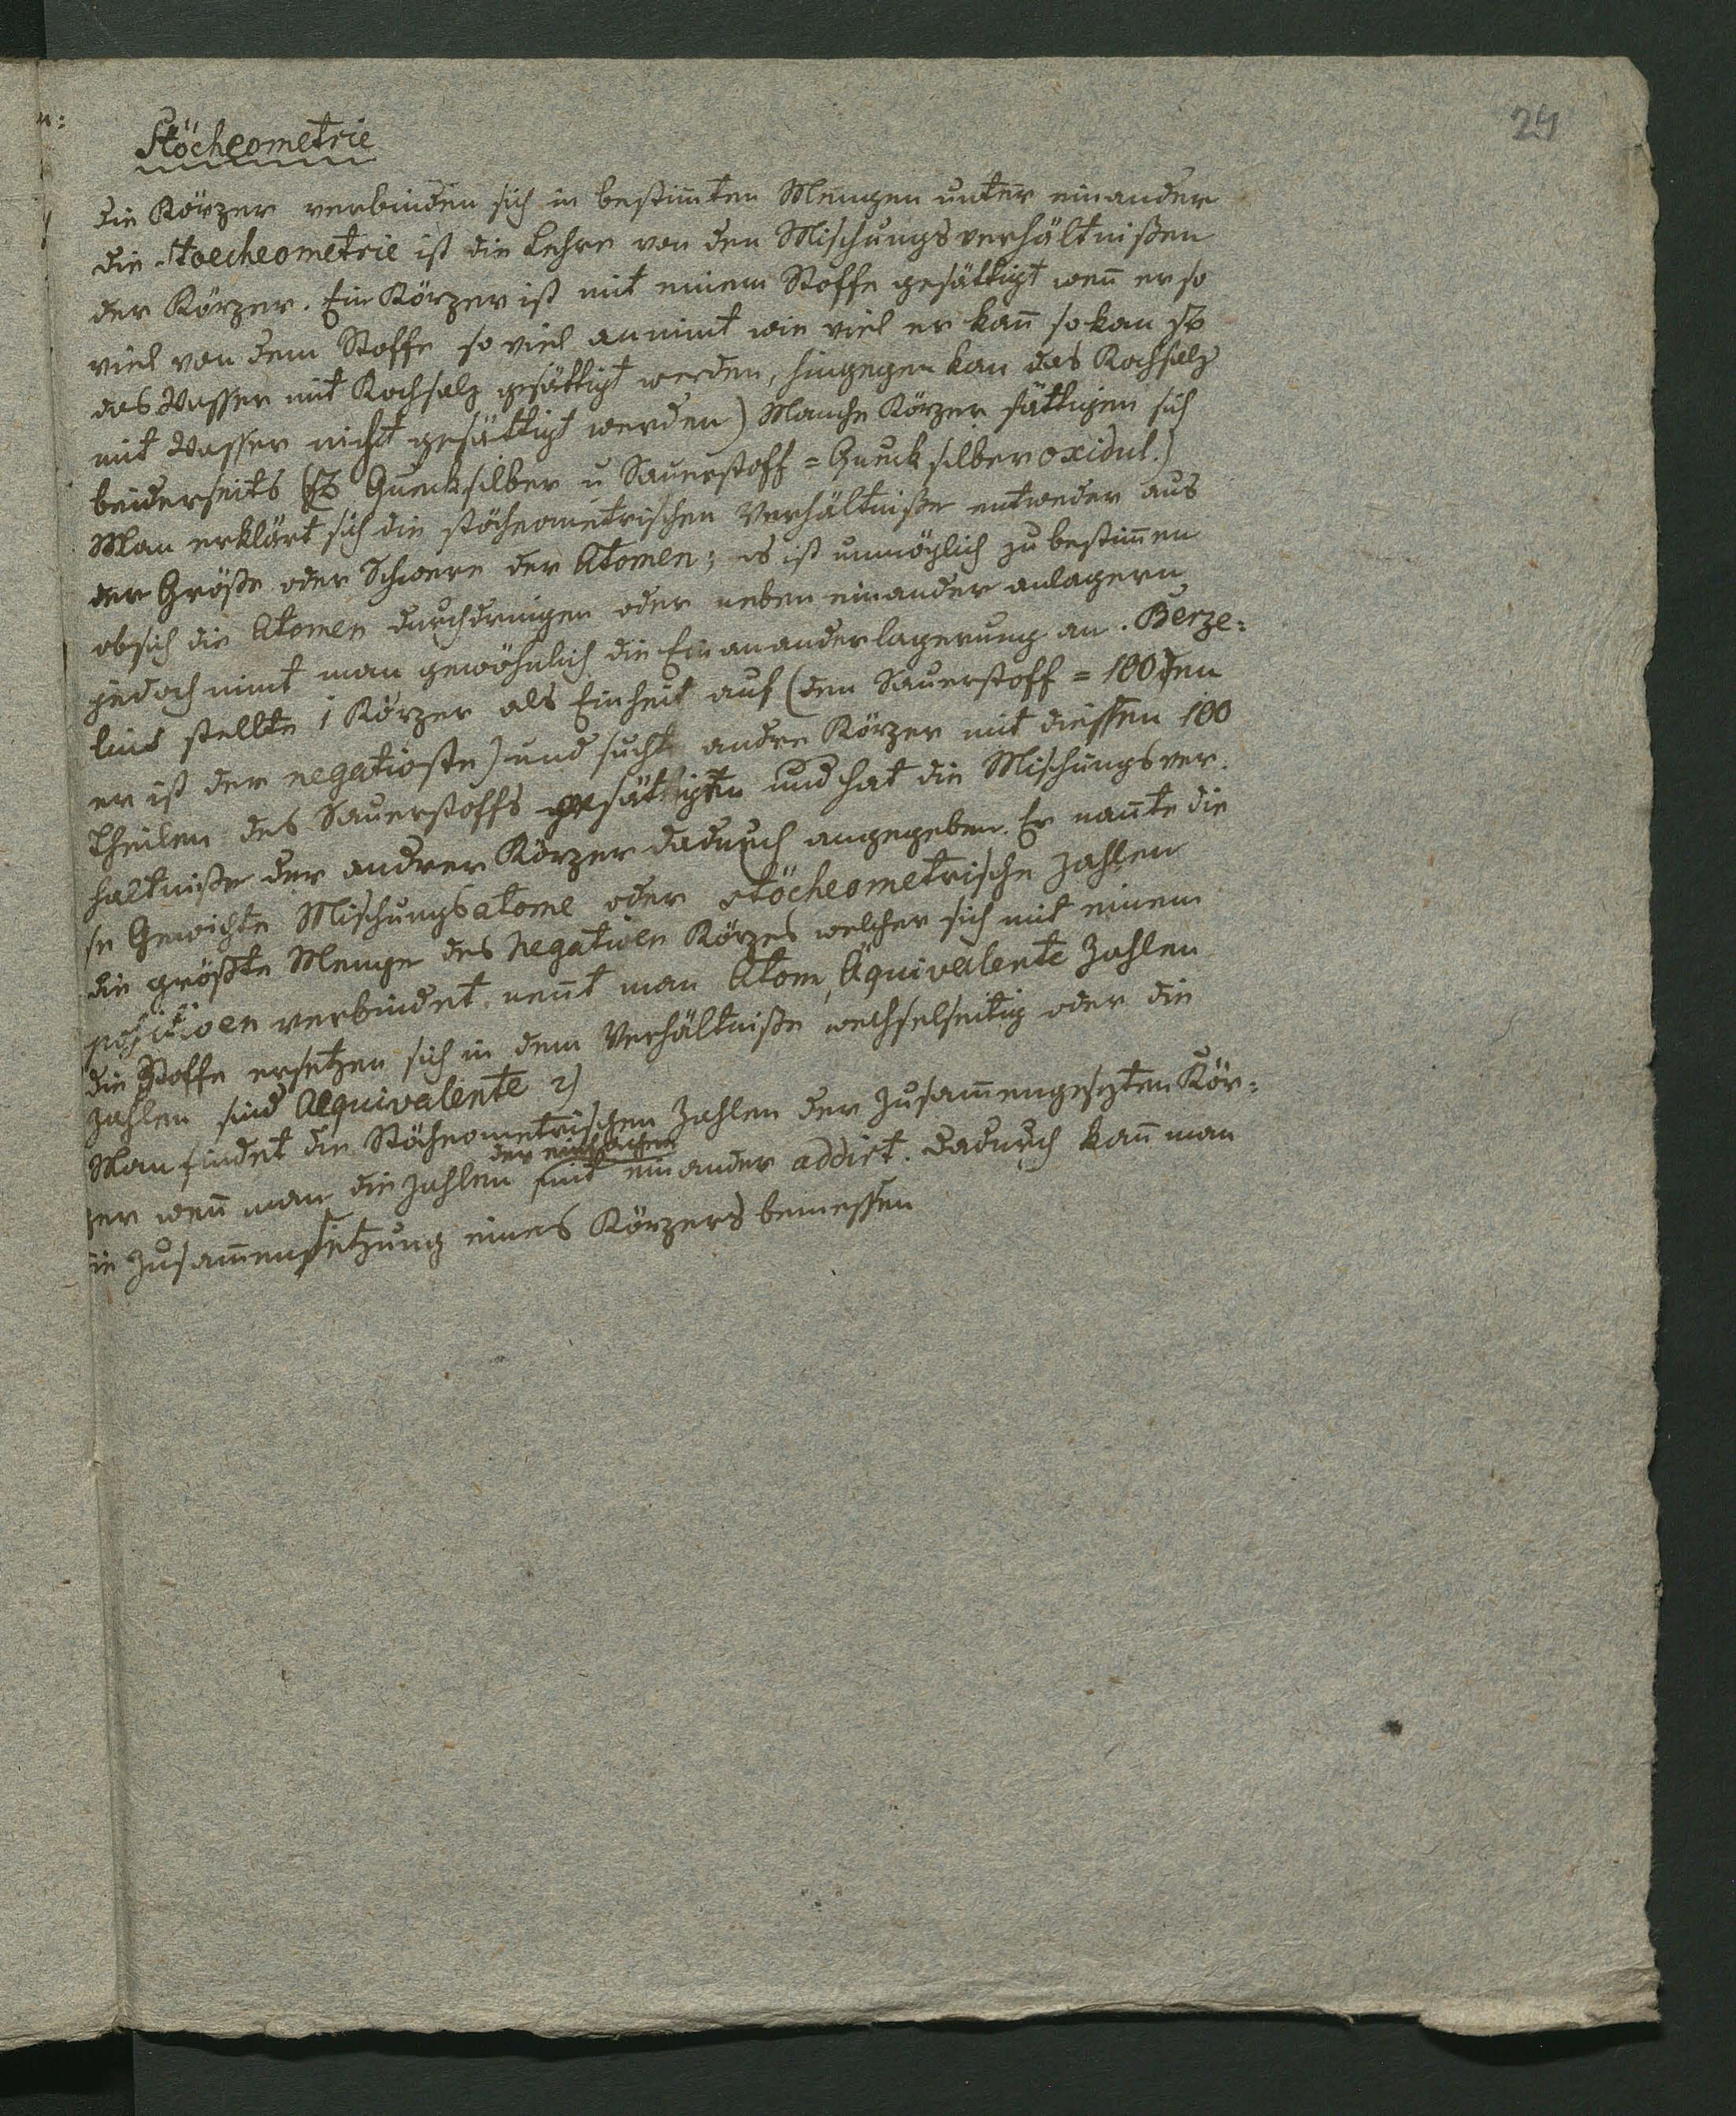 24
Stöcheometrie
die Körper verbinden sich in bestim̄ten Mengen unter einander
die Stoecheometrie ist die Lehre von den Mischungsverhältnißen
der Körper. Ein Körper ist mit einem Stoffe gesättigt wen̄ er so
viel von dem Stoffe so viel annim̄t wie viel er kan̄ so kan zb
das Wasser mit Kochsalz gesättigt werden, hingegen kan das Kochsalz
mit Wasser nicht gesättigt werden) Manche Körper sättigen sich
beiderseits (zb Quecksilber u Sauerstoff = Quecksilberoxidul.)
Man erklärt sich die stöcheometrischen Verhältniße entweder aus
der Größe oder Schwere der Atomen; es ist unmöglich zu bestim̄en
ob sich die Atomen durchdringen oder neben einander anlagern
jedoch nim̄t man gewöhnlich die Einananderlagerung an. Berze:
lius stellte 1 Körper als Einheit auf (den Sauerstoff = 100 den
er ist der negativste) und suchte andre Körper mit diessen 100
Theilen des Sauerstoffs gesättigten und hat die Mischungsver.
hältniße der andrer Körper dadurch angegeben. Er nan̄te die
se Gewichte Mischungsatome oder stöcheometrische Zahlen
die größte Menge des negativen Körpes welcher sich mit einem
positiven verbindet. nen̄t man Atom, Äquivalente Zahlen
die Stoffe ersetzen sich in dem Verhältniße wechselseitig oder die
Zahlen sind Aequivalente 2)
Man findet die Stöcheometrischen Zahlen der Zusam̄engesezten Kör:
der einfachen
per wen̄ man die Zahlen mit einander addirt. dadurch kan̄ man
die Zusam̄ensetzung eines Körpers bemessen